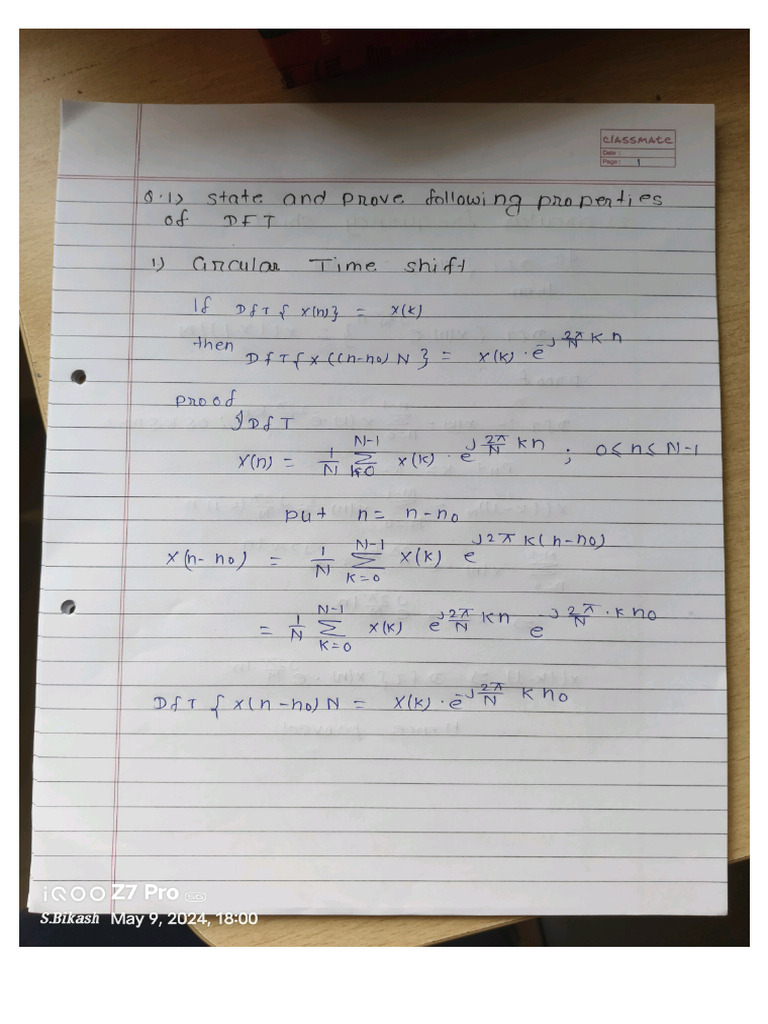 CLASSMATE
Date :
Page : 1
Q.1) State and prove following properties
of DFT
1) Circular Time shift
If DFT { x(n)} = X(k)
then DFT{ x ((n-n0) N } = X(k) · e^-j 2π/N k n
proof
IDFT
x(n) = 1/N N-1 Σ k=0 X(k) · e^j 2π/N kn ; 0 ≤ n ≤ N-1
put n = n - n0
x(n- n0) = 1/N N-1 Σ k=0 X(k) e^j 2π k(n-n0)
= 1/N N-1 Σ k=0 X(k) e^j 2π/N kn e^-j 2π/N · k n0
DFT { x(n -n0) N = X(k) · e^-j 2π/N k n0
iQOO Z7 Pro 5G
S.Bikash May 9, 2024, 18:00